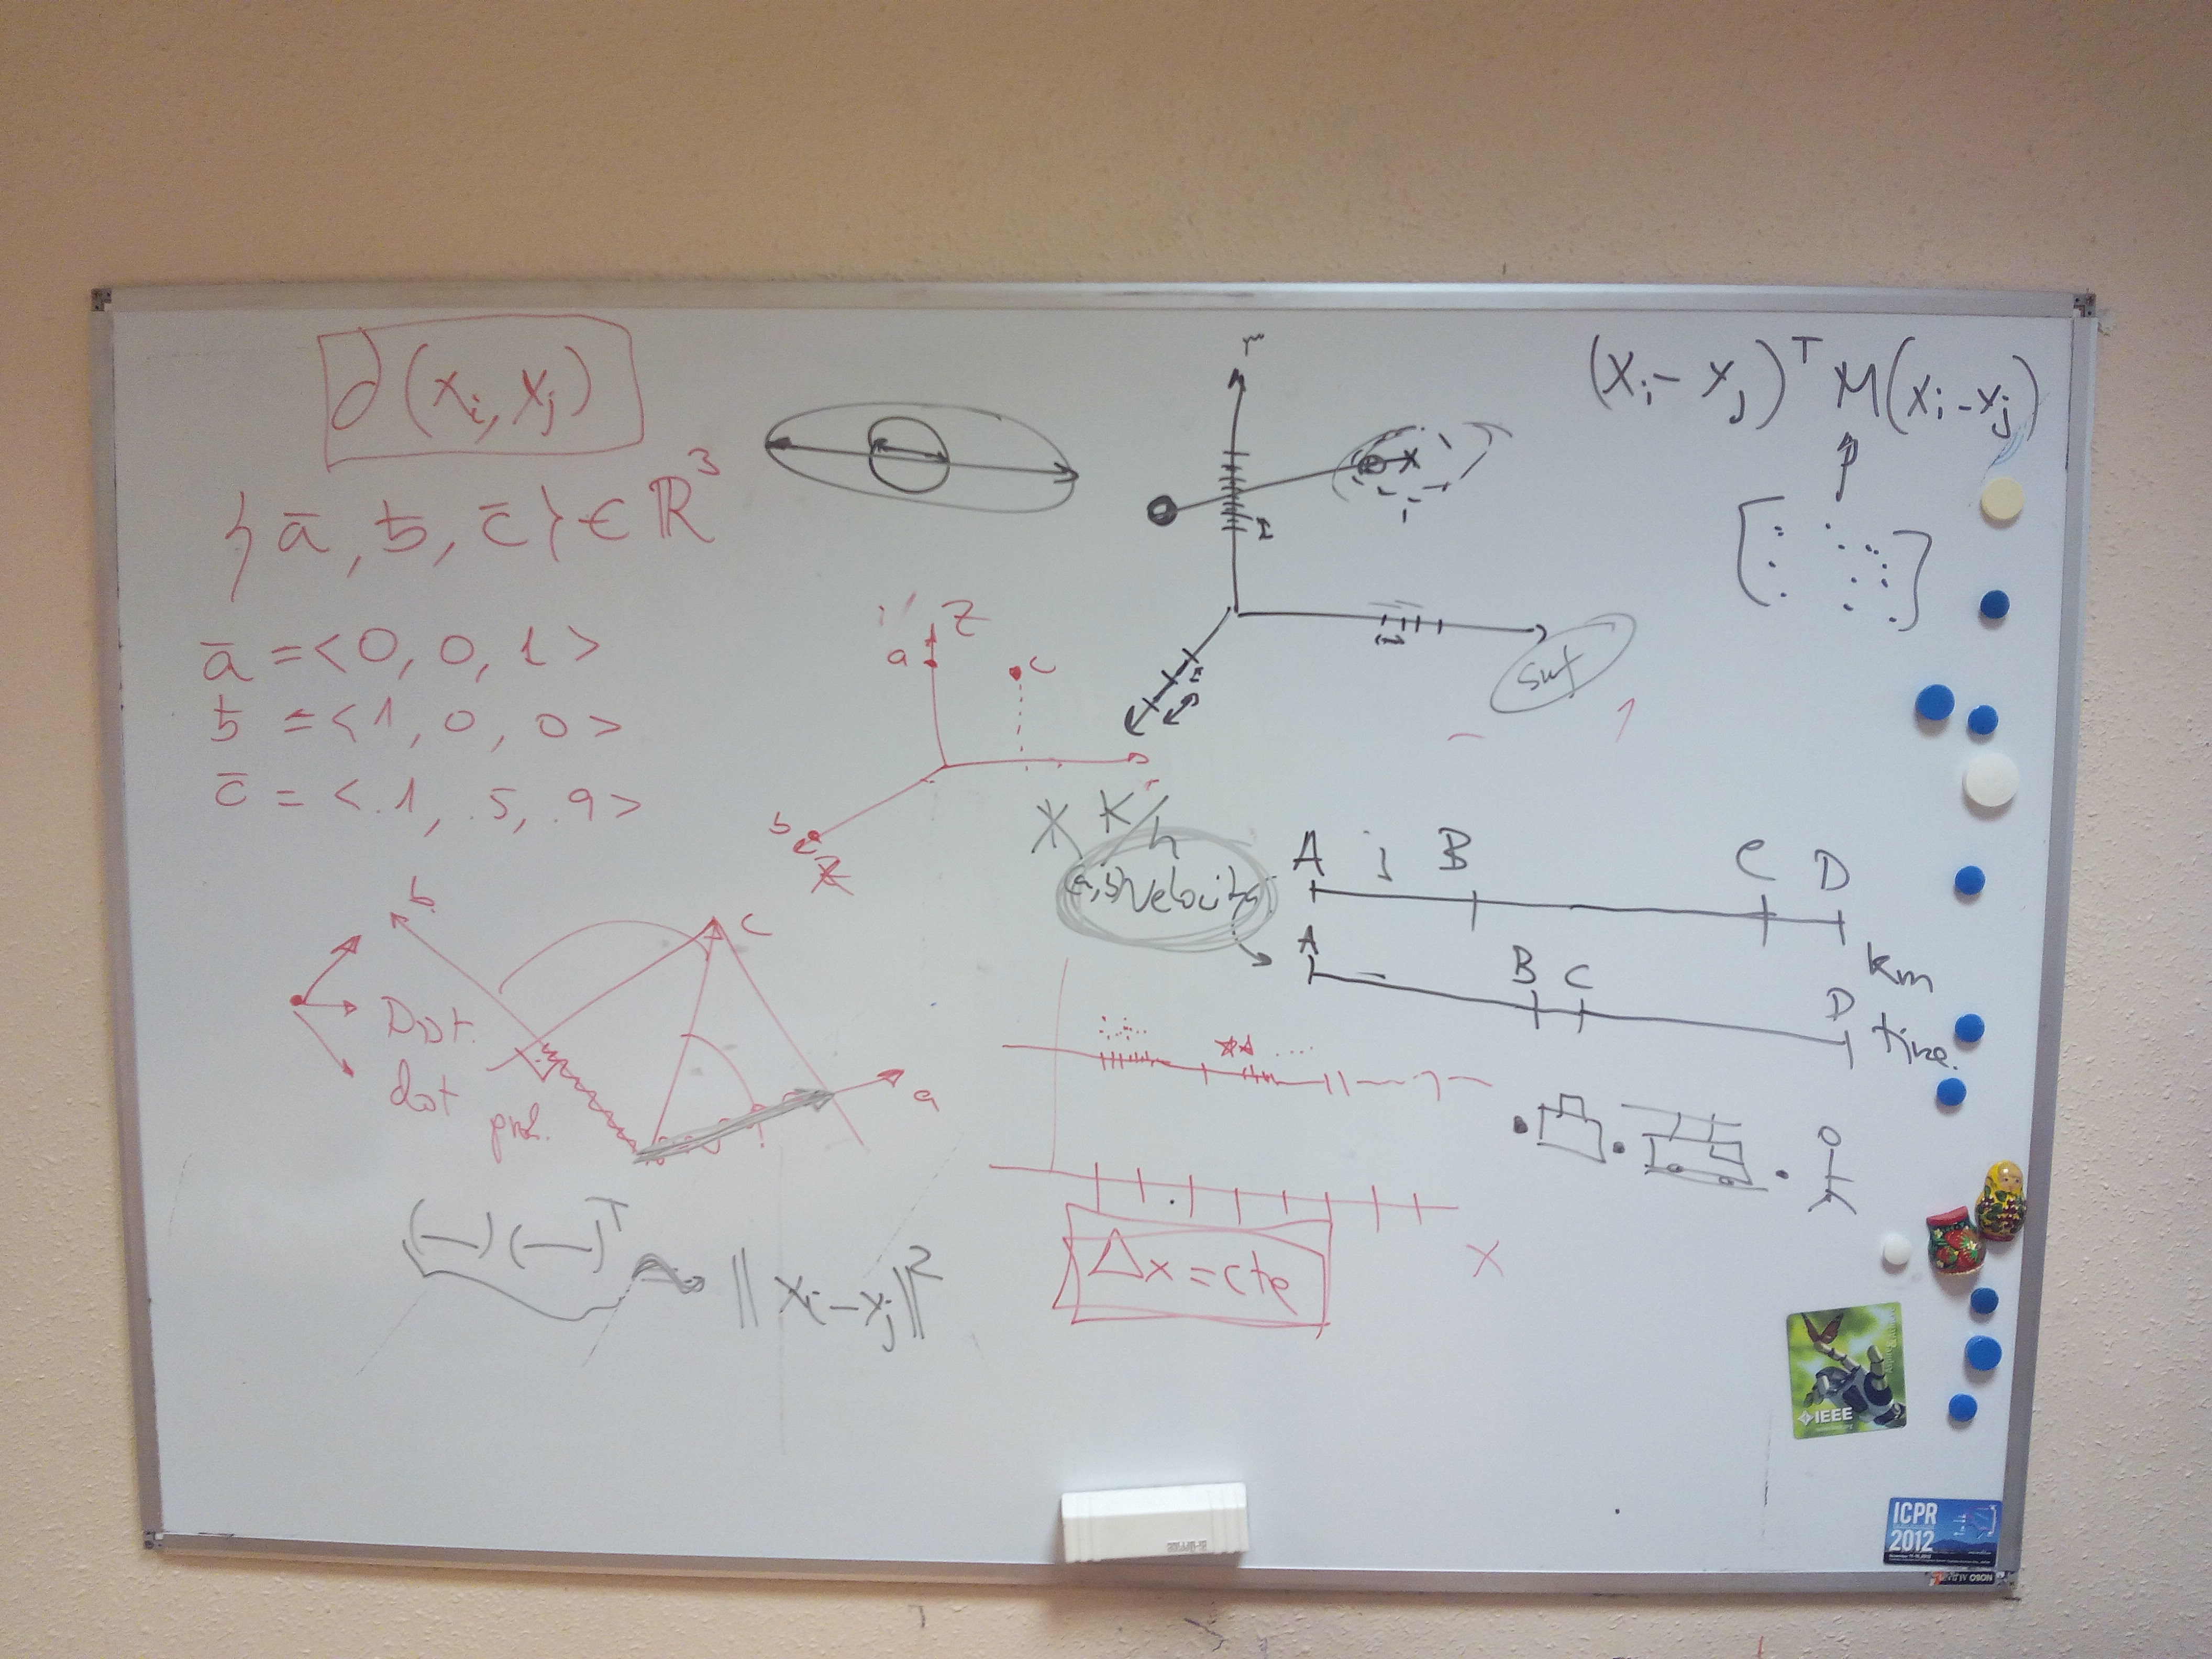 ∂(xᵢ, xⱼ)
{ā, b̄, c̄} ∈ ℝ³
ā = <0, 0, 1>
b̄ = <1, 0, 0>
c̄ = <.1, .5, .9>
r
(xᵢ - xⱼ)ᵀ M (xᵢ - xⱼ)
z
a
c
b
x
K/h
(a,b) velocity
A B C D
km
A B C D
time.
b
c
a
Dot.
dot prod.
(—)(—)ᵀ ~> ||xᵢ - xⱼ||²
Δx = cte
x
IEEE
ICPR
2012